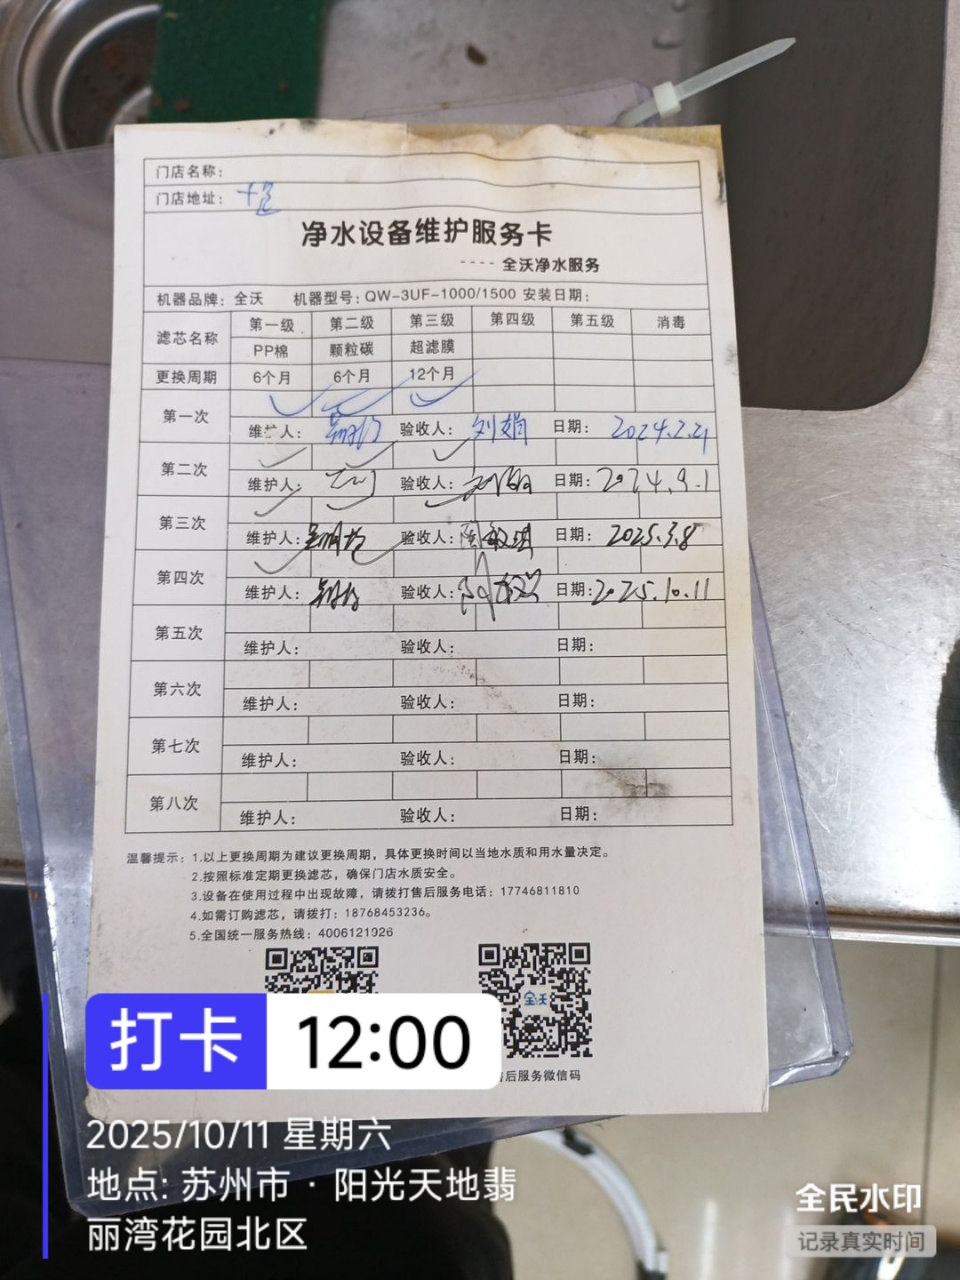 门店名称：
门店地址：十足
净水设备维护服务卡
---- 全沃净水服务
机器品牌：全沃 机器型号：QW-3UF-1000/1500 安装日期：
滤芯名称 第一级 第二级 第三级 第四级 第五级 消毒
PP棉 颗粒碳 超滤膜
更换周期 6个月 6个月 12个月
第一次
维护人： 验收人：刘娟 日期：2024.2.21
第二次
维护人： 验收人： 日期：2024.9.1
第三次
维护人： 验收人： 日期：2025.3.8
第四次
维护人： 验收人： 日期：2025.10.11
第五次
维护人： 验收人： 日期：
第六次
维护人： 验收人： 日期：
第七次
维护人： 验收人： 日期：
第八次
维护人： 验收人： 日期：
温馨提示：1.以上更换周期为建议更换周期，具体更换时间以当地水质和用水量决定。
2.按照标准定期更换滤芯，确保门店水质安全。
3.设备在使用过程中出现故障，请拨打售后服务电话：17746811810
4.如需订购滤芯，请拨打：18768453236。
5.全国统一服务热线：4006121926
全沃
后服务微信码
打卡 12:00
2025/10/11 星期六
地点: 苏州市 · 阳光天地翡
丽湾花园北区
全民水印
记录真实时间